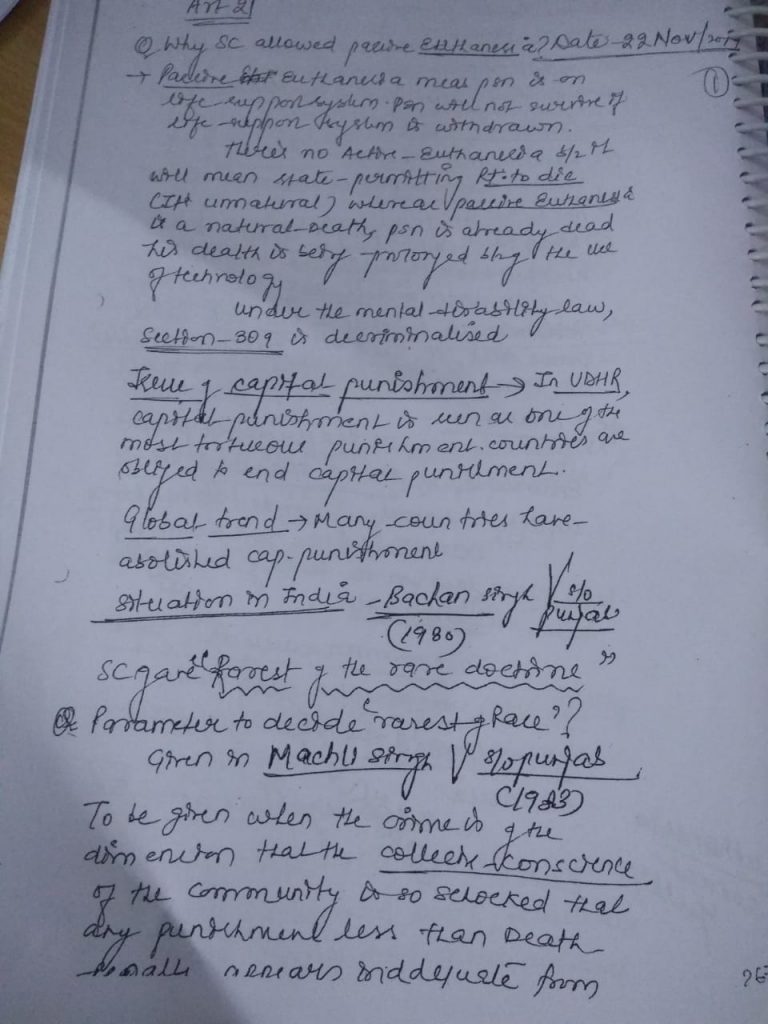 Art 21
Q Why SC allowed passive Euthanasia? Date-22 Nov/2017
①
→ Passive Euthanasia meas psn is on
life support system. psn will not survive if
life-support system is withdrawn.
There's no Active-Euthanasia b/z it
will mean state-permitting Rt. to die
(It unnatural) whereas passive Euthanasia
is a natural-death, psn is already dead
his death is being-prolonged b/z the use
of technology
under the mental disability law,
Section-309 is decriminalised
Issue of capital punishment → In UDHR,
capital punishment is seen as one of the
most tortueous punishment. countries are
obliged to end capital punishment.
Global trend → Many-countries have-
abolished cap-punishment
situation in India - Bachan singh V s/o
punjab
(1980)
SC gave "rarest of the rare doctrine"
Q Parameter to decide 'rarest of Rare'?
Given in Machli singh V s/o punjab
(1983)
To be given when the crime is of the
dimension that the collective-conscience
of the community is so schocked that
any punishment less than Death
penalty inadequate from